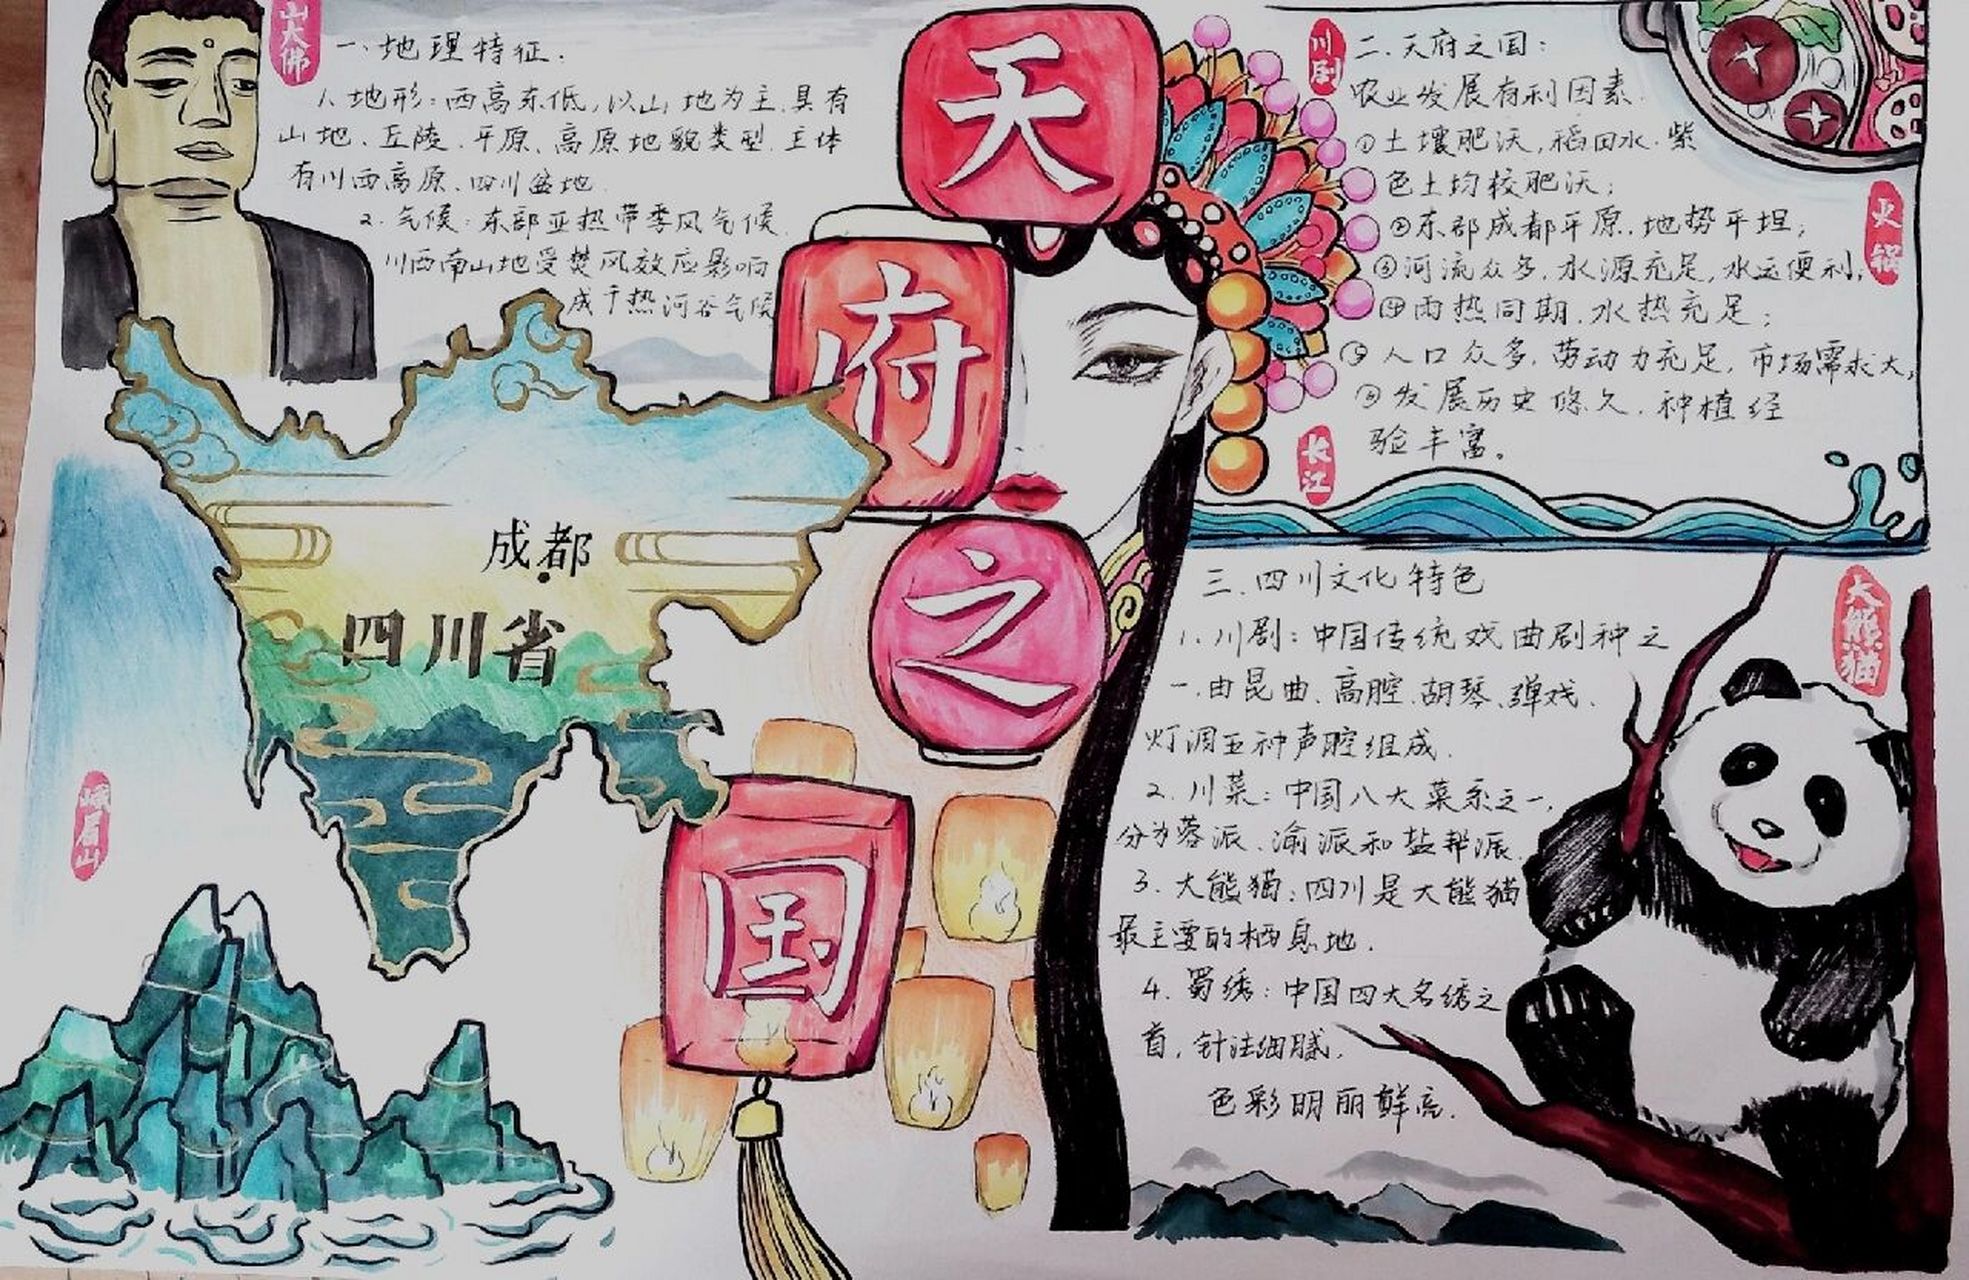 山大佛
一、地理特征.
1、地形：西高东低，以山地为主.具有
山地、丘陵、平原、高原地貌类型.主体
有川西高原、四川盆地.
2. 气候：东部亚热带季风气候.
川西南山地受焚风效应影响
成干热河谷气候
天
府
之
国
成都
四川省
峨眉山
川剧
二.天府之国：
农业发展有利因素.
①土壤肥沃，稻田水.紫
色土均较肥沃；
②东部成都平原.地势平坦；
③河流众多.水源充足，水运便利；
④雨热同期.水热充足；
⑤人口众多.劳动力充足，市场需求大，
⑥发展历史悠久.种植经
验丰富。
火锅
长江
三.四川文化特色
1.川剧：中国传统戏曲剧种之
一.由昆曲、高腔.胡琴、弹戏、
灯调五种声腔组成.
2. 川菜：中国八大菜系之一，
分为蓉派、渝派和盐帮派.
3. 大熊猫：四川是大熊猫
最主要的栖息地.
4. 蜀绣：中国四大名绣之
首，针法细腻.
色彩明丽鲜亮.
大熊猫